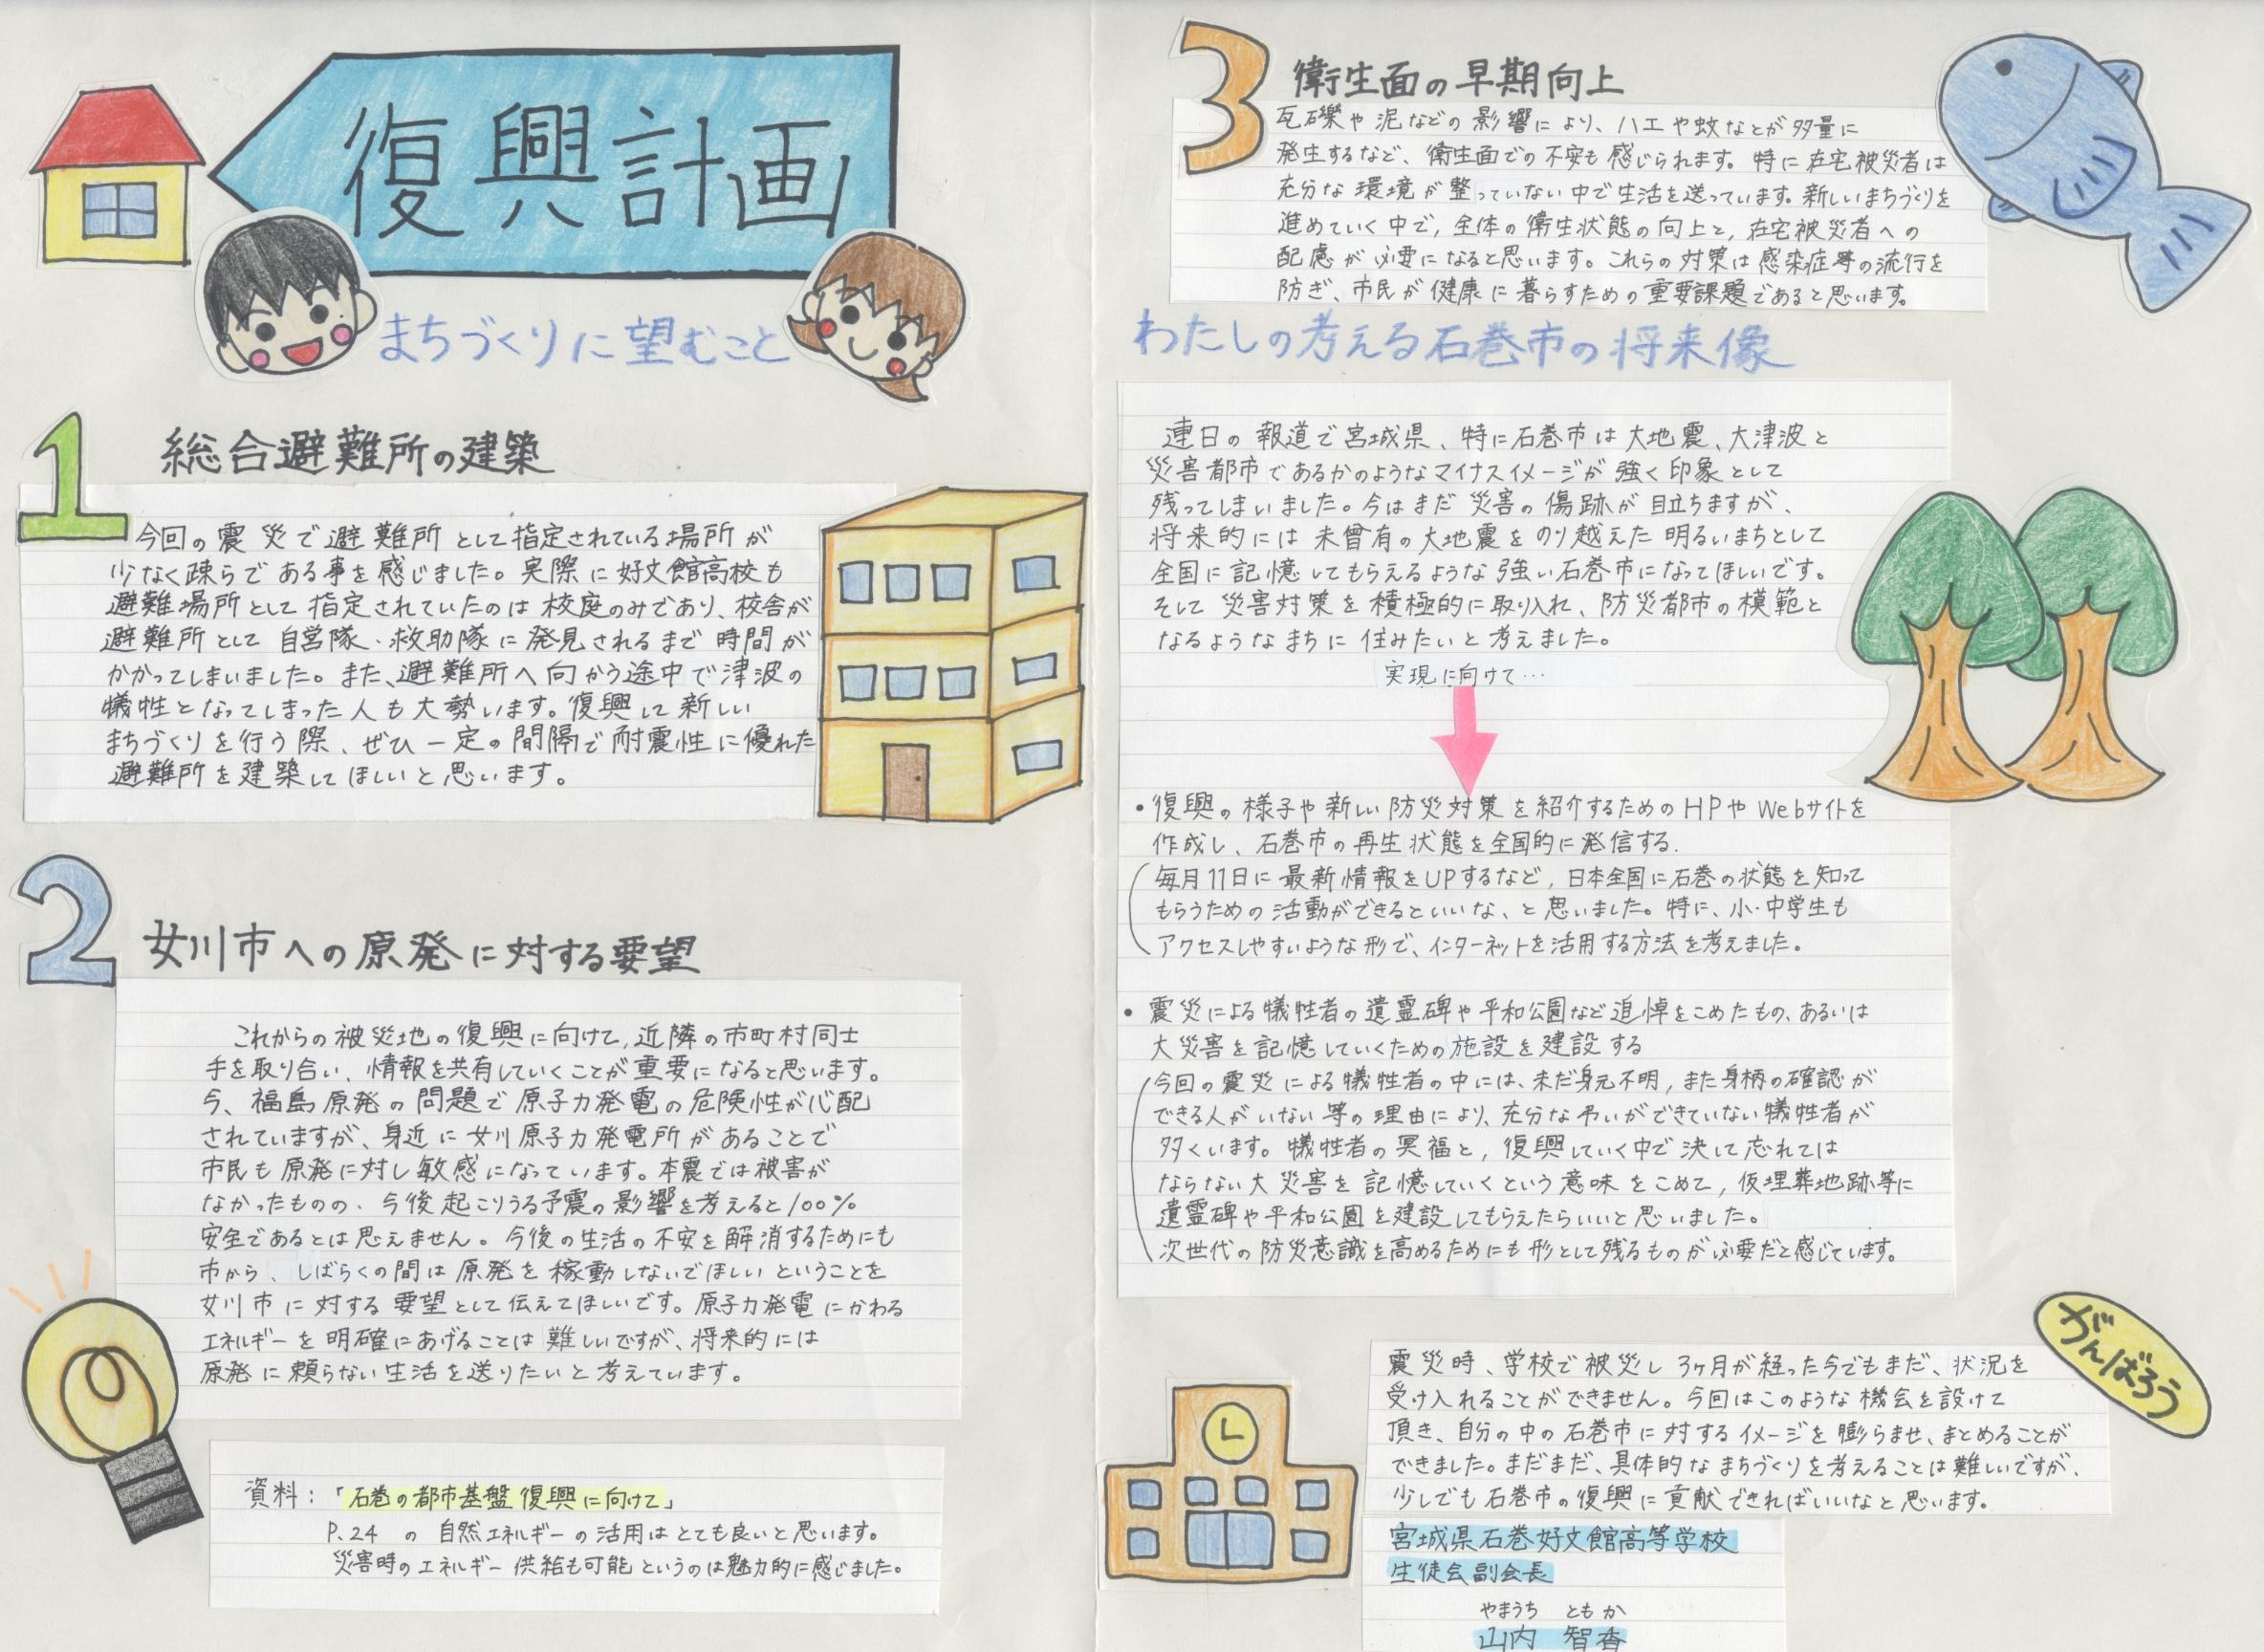 復興計画
まちづくりに望むこと
1 総合避難所の建築
今回の震災で避難所として指定されている場所が
少なく疎らである事を感じました。実際に好文館高校も
避難場所として指定されていたのは校庭のみであり、校舎が
避難所として自営隊・救助隊に発見されるまで時間が
かかってしまいました。また、避難所へ向かう途中で津波の
犠牲となってしまった人も大勢います。復興して新しい
まちづくりを行う際、ぜひ一定の間隔で耐震性に優れた
避難所を建築してほしいと思います。
2 女川市への原発に対する要望
これからの被災地の復興に向けて,近隣の市町村同士
手を取り合い、情報を共有していくことが重要になると思います。
今、福島原発の問題で原子力発電の危険性が心配
されていますが、身近に女川原子力発電所があることで
市民も原発に対し敏感になっています。本震では被害が
なかったものの、今後起こりうる予震の影響を考えると100%
安全であるとは思えません。今後の生活の不安を解消するためにも
市から、しばらくの間は原発を稼動しないでほしいということを
女川市に対する要望として伝えてほしいです。原子力発電にかわる
エネルギーを明確にあげることは難しいですが、将来的には
原発に頼らない生活を送りたいと考えています。
資料:「石巻の都市基盤復興に向けて」
P.24 の自然エネルギーの活用はとても良いと思います。
災害時のエネルギー供給も可能というのは魅力的に感じました。
3 衛生面の早期向上
瓦礫や泥などの影響により、ハエや蚊なとが多量に
発生するなど、衛生面での不安も感じられます。特に在宅被災者は
充分な環境が整っていない中で生活を送っています。新しいまちづくりを
進めていく中で,全体の衛生状態の向上と,在宅被災者への
配慮が必要になると思います。これらの対策は感染症等の流行を
防ぎ、市民が健康に暮らすための重要課題であると思います。
わたしの考える石巻市の将来像
連日の報道で宮城県、特に石巻市は大地震、大津波と
災害都市であるかのようなマイナスイメージが強く印象として
残ってしまいました。今はまだ災害の傷跡が目立ちますが、
将来的には未曾有の大地震をのり越えた明るいまちとして
全国に記憶してもらえるような強い石巻市になってほしいです。
そして災害対策を積極的に取り入れ、防災都市の模範と
なるようなまちに住みたいと考えました。
実現に向けて…
・復興の様子や新しい防災対策を紹介するためのHPやWebサイトを
作成し、石巻市の再生状態を全国的に発信する.
毎月11日に最新情報をUPするなど,日本全国に石巻の状態を知って
もらうための活動ができるといいな、と思いました。特に、小・中学生も
アクセスしやすいような形で、インターネットを活用する方法を考えました。
・震災による犠牲者の遺霊碑や平和公園など追悼をこめたもの、あるいは
大災害を記憶していくための施設を建設する
今回の震災による犠牲者の中には、未だ身元不明,また身柄の確認が
できる人がいない等の理由により、充分な弔いができていない犠牲者が
多くいます。犠牲者の冥福と,復興していく中で決して忘れては
ならない大災害を記憶していくという意味をこめて,仮埋葬地跡等に
遺霊碑や平和公園を建設してもらえたらいいと思いました。
次世代の防災意識を高めるためにも形として残るものが必要だと感じています。
がんばろう
震災時、学校で被災し3ヶ月が経った今でもまだ、状況を
受け入れることができません。今回はこのような機会を設けて
頂き、自分の中の石巻市に対するイメージを膨らませ、まとめることが
できました。まだまだ、具体的なまちづくりを考えることは難しいですが、
少しでも石巻市の復興に貢献できればいいなと思います。
宮城県石巻好文館高等学校
生徒会副会長
やまうち ともか
山内 智香